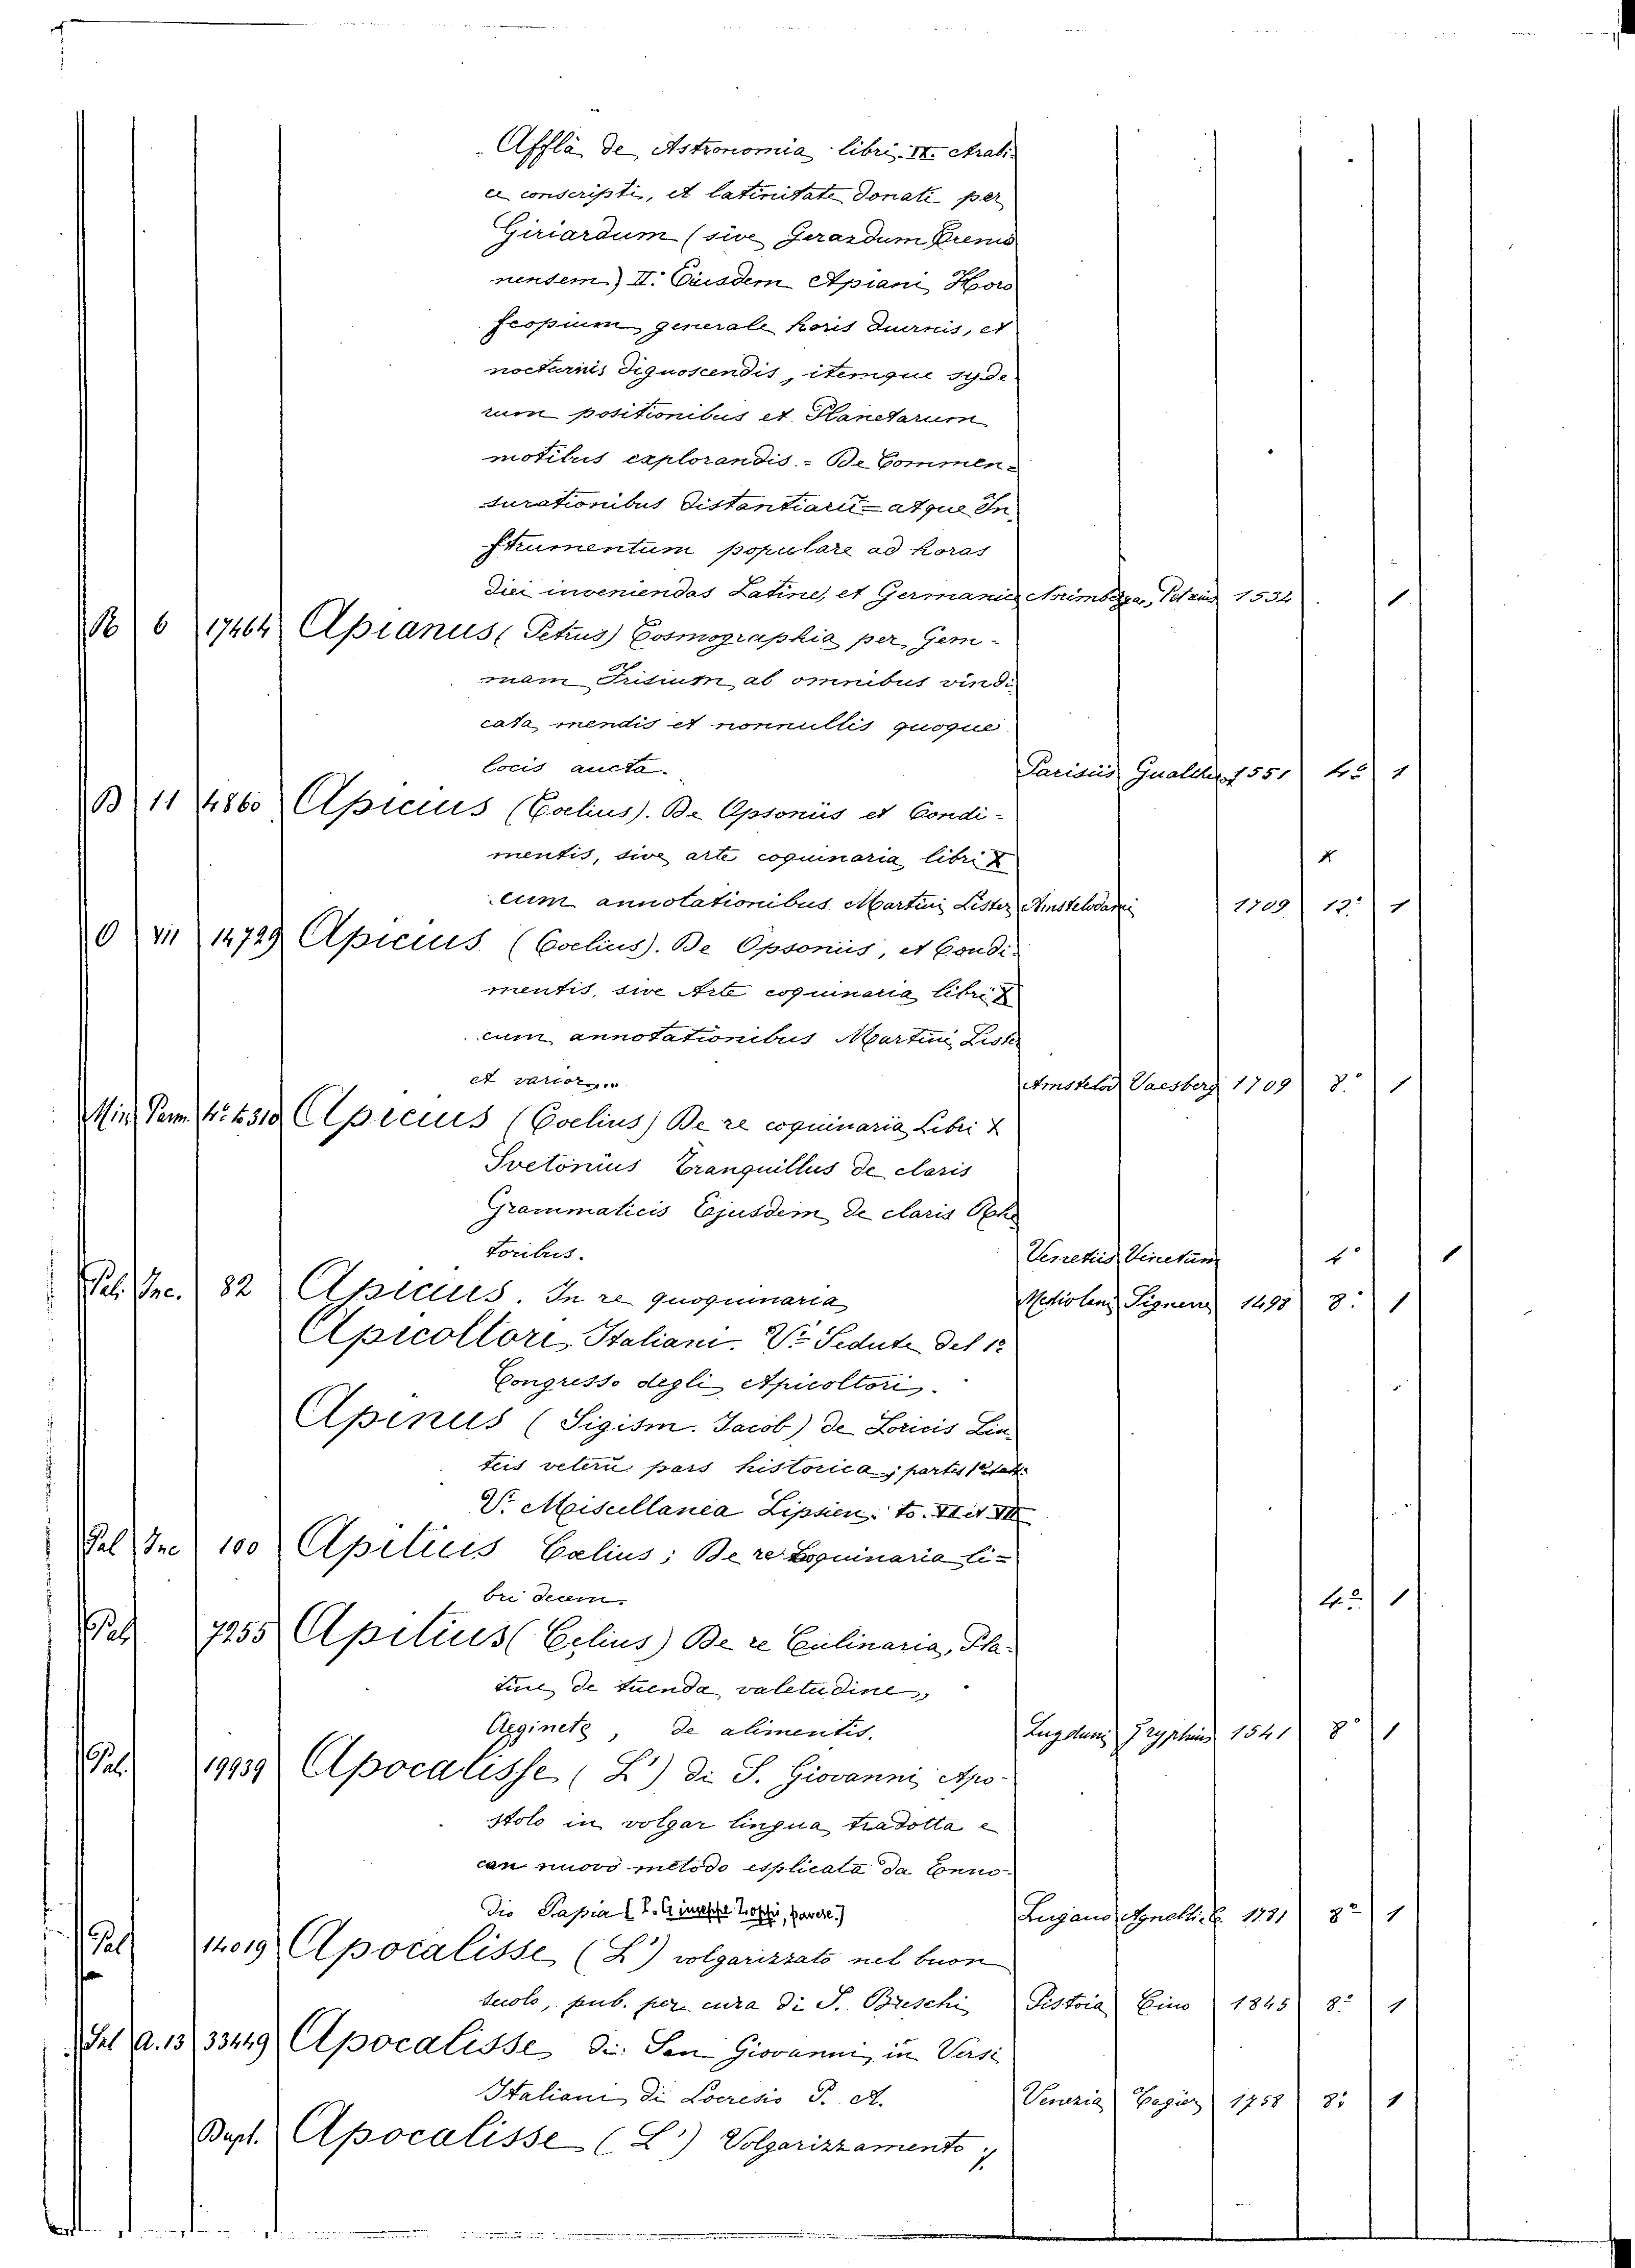 Afflà de Astronomia libri IX. Arabi-
ce conscripti, et latinitate donati per
Giriardum (sive Gerardum Cremo
nensem) II. Eiusdem Apiani Horo
scopium generale horis diurnis, et
nocturnis dignoscendis, itemque syde
rum positionibus et Planetarum
motibus explorandis. = De Commen-
surationibus distantiarū = atque In
strumentum populare ad horas
diei inveniendas Latine, et Germanice Norimbergae, Petreius 1534 1
B 6 17464 Apianus (Petrus) Cosmographia per Gem-
mam Frisium ab omnibus vindi
cata mendis et nonnullis quoque
locis aucta. Parisiis Gualther 1551 4° 1
B 11 4860 Apicius (Coelius). De Opsoniis et Condi-
mentis, sive arte coquinaria libri X
cum annotationibus Martini Lister Amstelodami 1709 12° 1
O VII 14729 Apicius (Coelius). De Opsoniis, et Condi-
mentis, sive Arte coquinaria libri X
cum annotationibus Martini Lister
et varior. Amstelod Vaesberg 1709 8.° 1
Min. Parm. 4310 Apicius (Coelius) De re coquinaria Libri X
Svetonius Tranquillus de claris
Grammaticis Ejusdem de claris
toribus. Venetiis Venetum 4° 1
Pal. Inc. 82 Apicius. In re quoquinaria Mediolani Signerre 1498 8.° 1
Apicoltori Italiani. V. Sedute del 1°
Congresso degli Apicoltori.
Apinus (Sigism. Jacob) de Loricis Lin-
teis veterū pars historica, partes
V. Miscellanea Lipsien. to. VI et VII
Pal Inc 100 Apitius Celius; De re Coquinaria li-
bri decem. 4° 1
Pal 7255 Apitius (Celius) De re Culinaria, Pla-
tine de tuenda valetudine,
Aeginete, de alimentis. Lugduni Gryphius 1541 8° 1
Pal. 19939 Apocalisse (L') di S. Giovanni Apo-
stolo in volgar lingua tradotta e
con nuovo metodo esplicata da Enno-
dio Papia (P. Giuseppe Zoppi, pavese.) Lugano Agnelli e C. 1781 8° 1
Pal 14019 Apocalisse (L') volgarizzato nel buon
secolo, pub. per cura di S. Breschi Pistoia Cino 1845 8.° 1
Pal A. 13 33449 Apocalisse di San Giovanni, in Versi
Italiani di Loeresio P. A. Venezia Bagier 1758 8° 1
Dupl. Apocalisse (L') Volgarizzamento